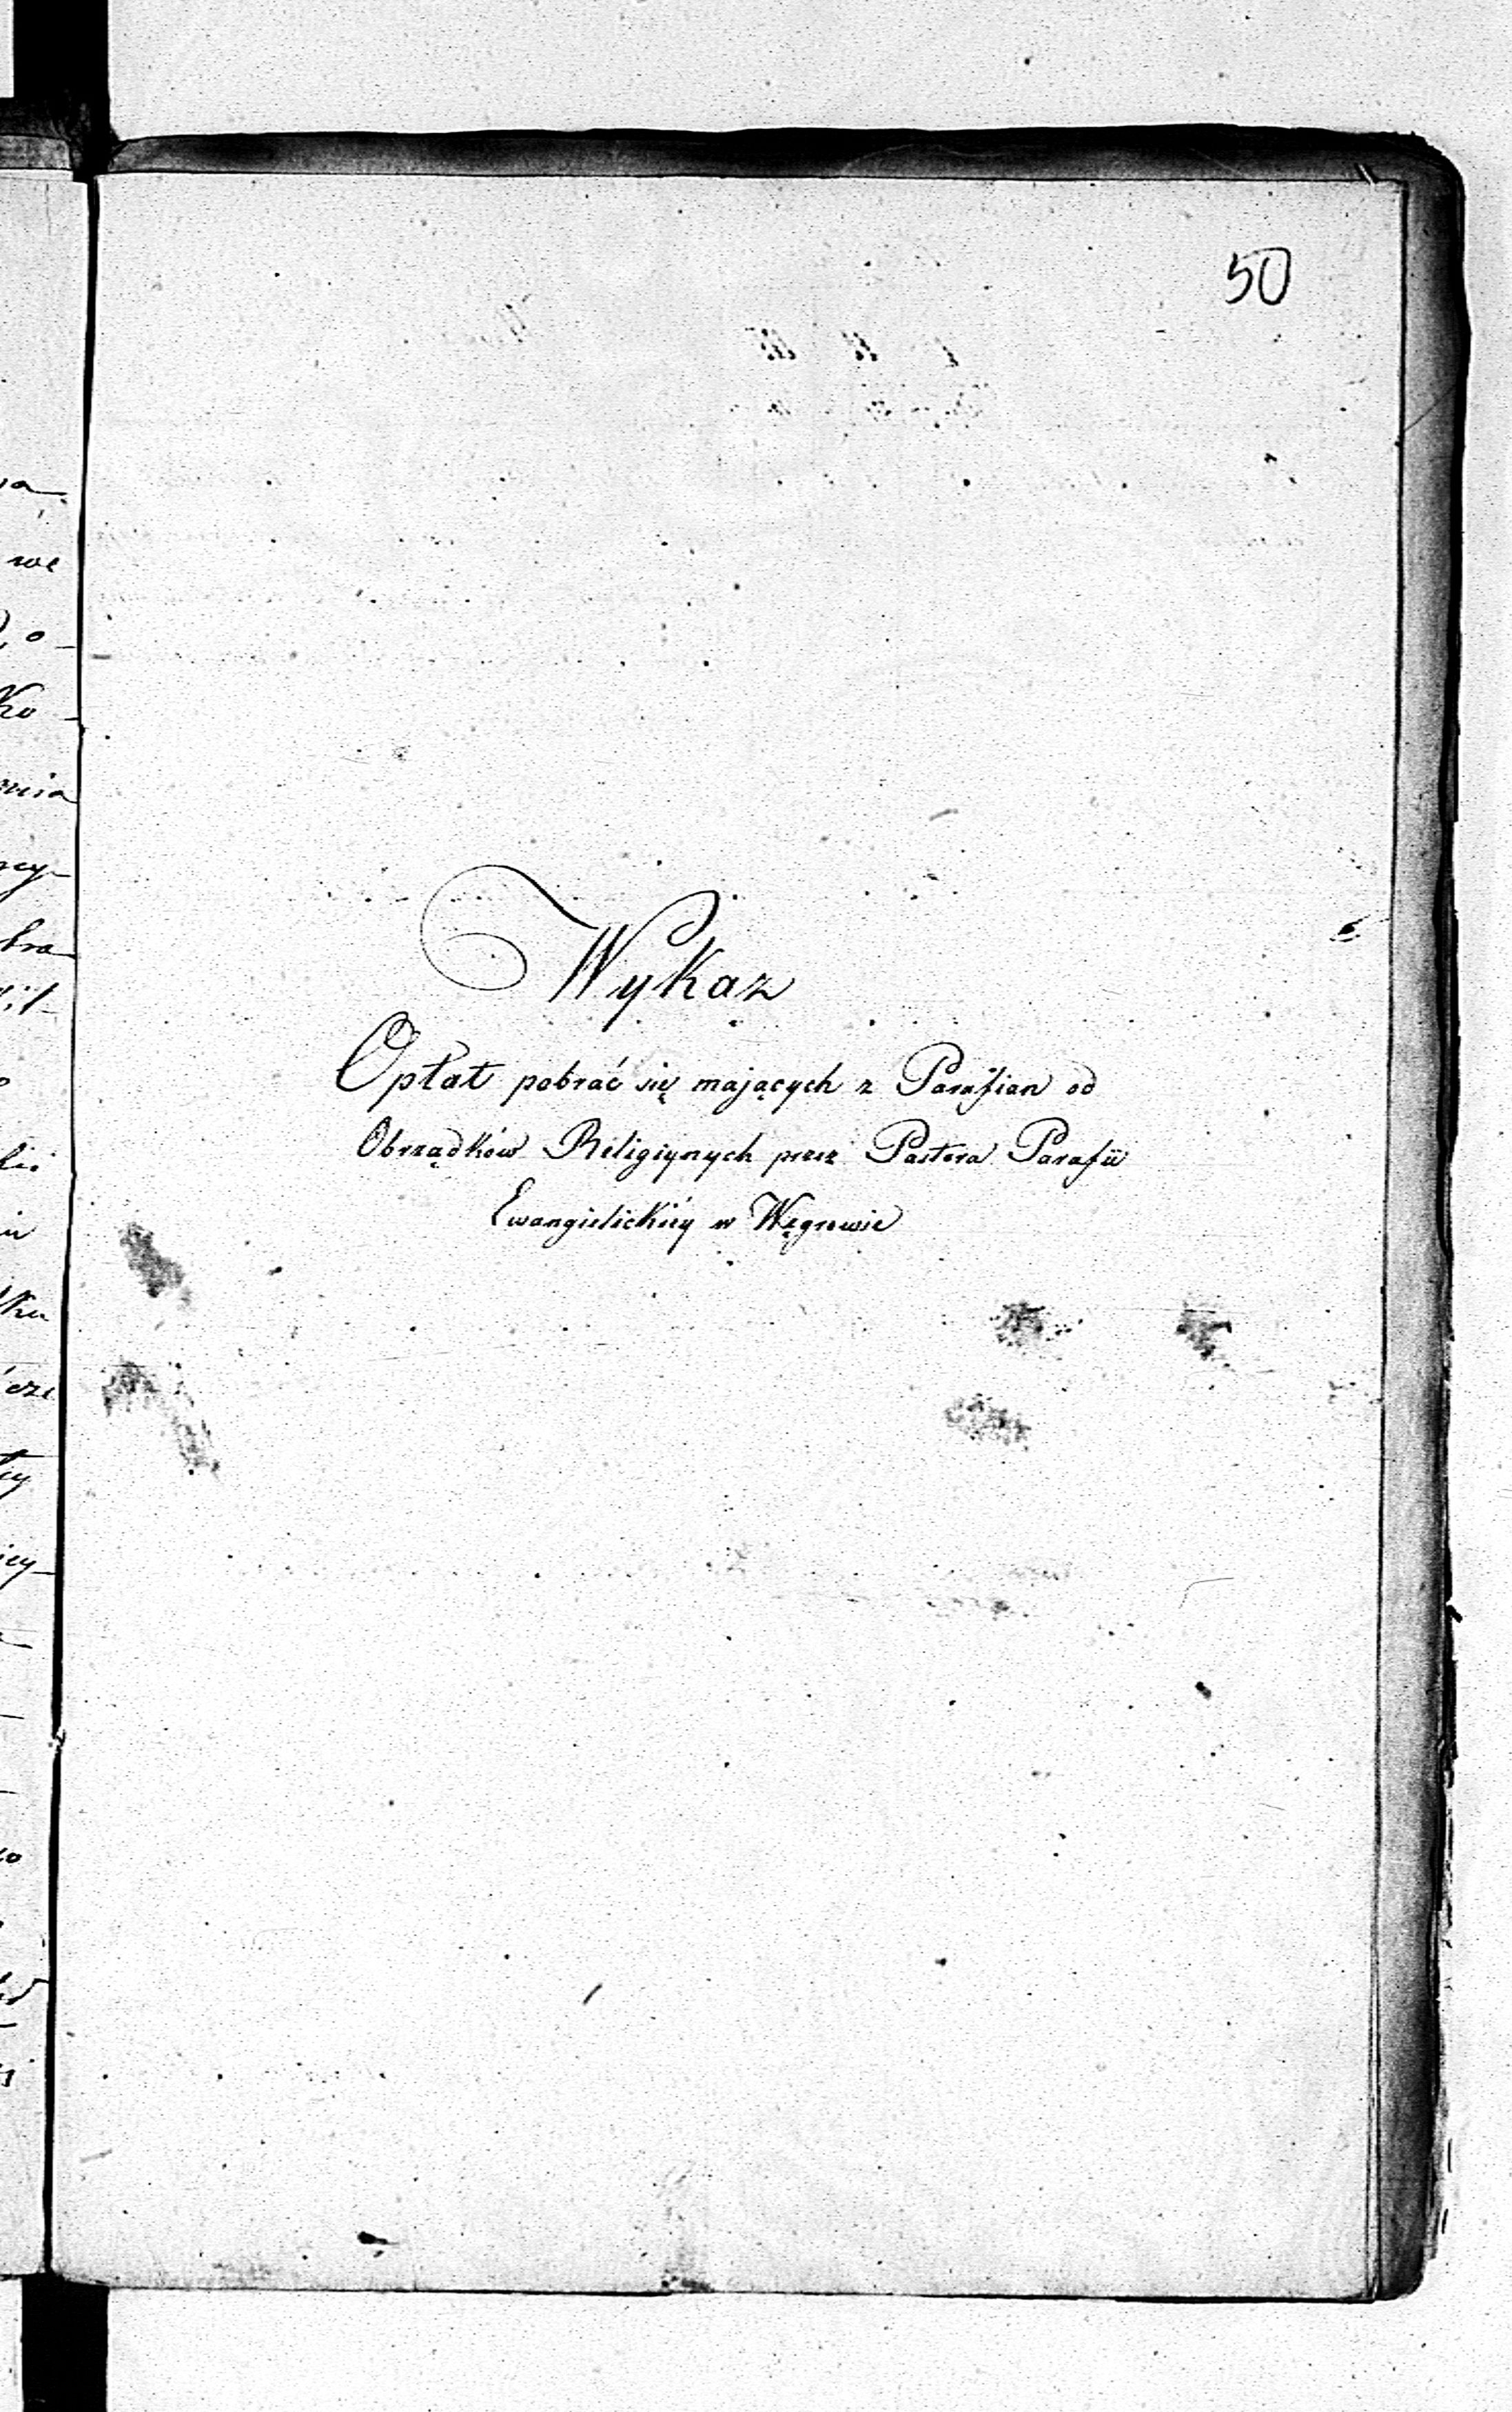 50
Wykaz
Opłat pobrać się mających z Parafian od
Obrządków Religiynych przez Pastora Parafii
Ewangielickiéy w Węgrowie